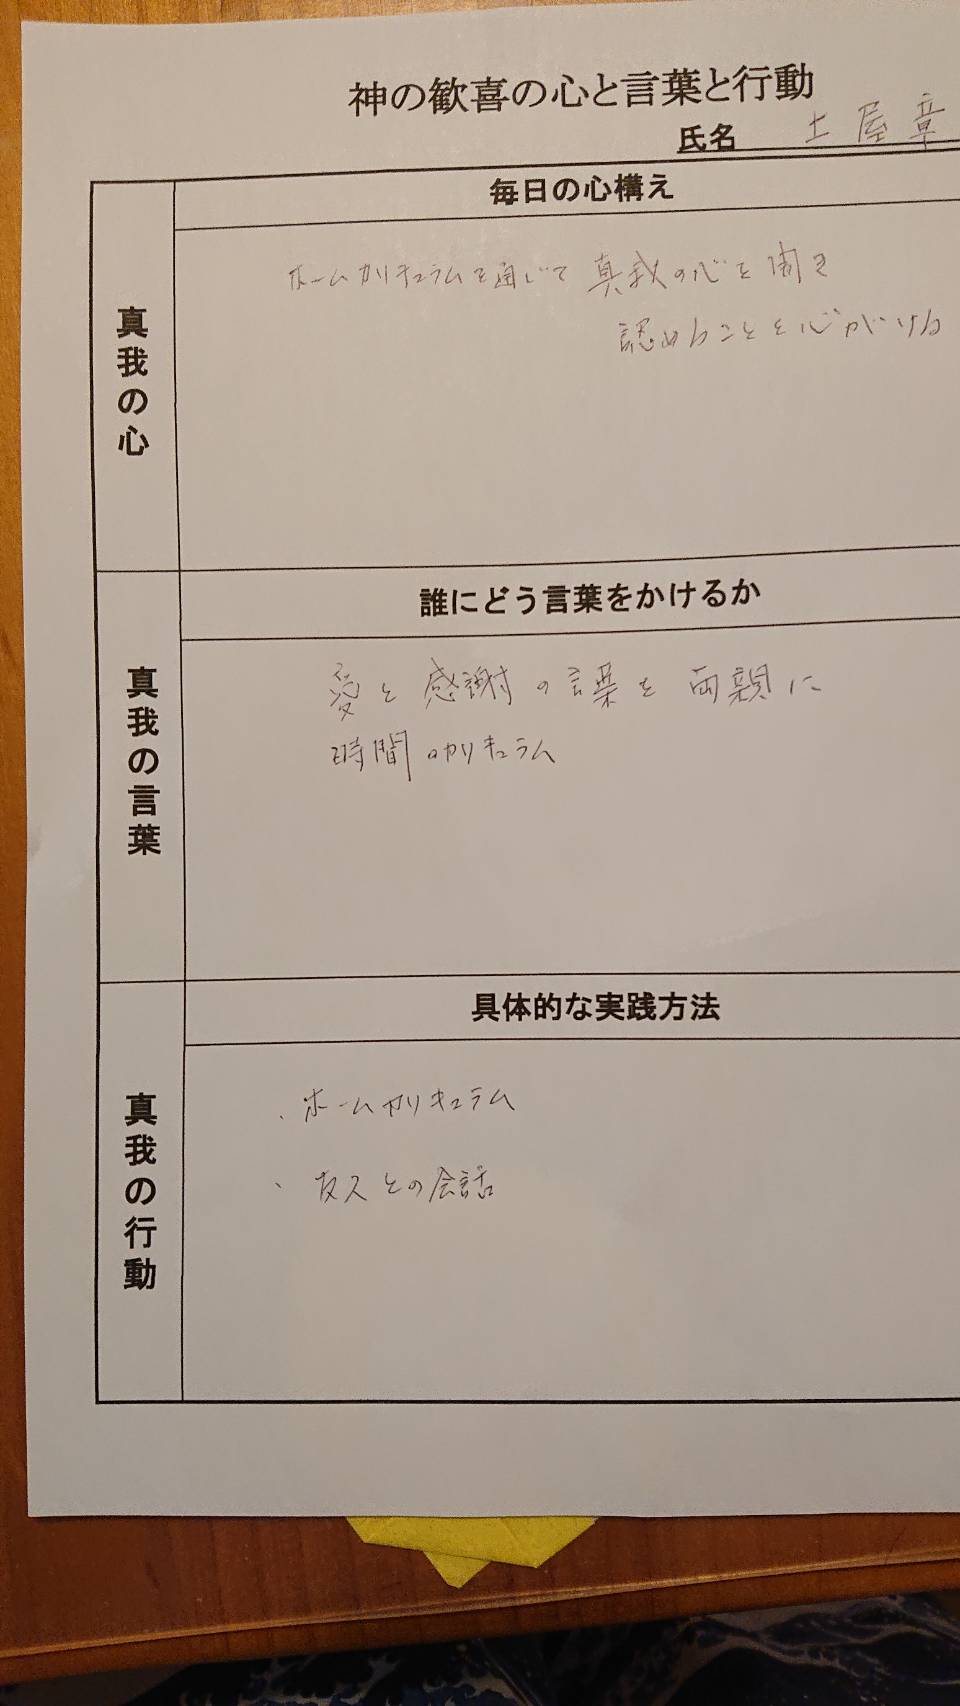 神の歓喜の心と言葉と行動
氏名 土屋章
毎日の心構え
真我の心
ホームカリキュラムを通じて真我の心を開き
認めることを心がける
誰にどう言葉をかけるか
真我の言葉
愛と感謝の言葉を両親に
時間のカリキュラム
具体的な実践方法
真我の行動
・ホームカリキュラム
・友人との会話